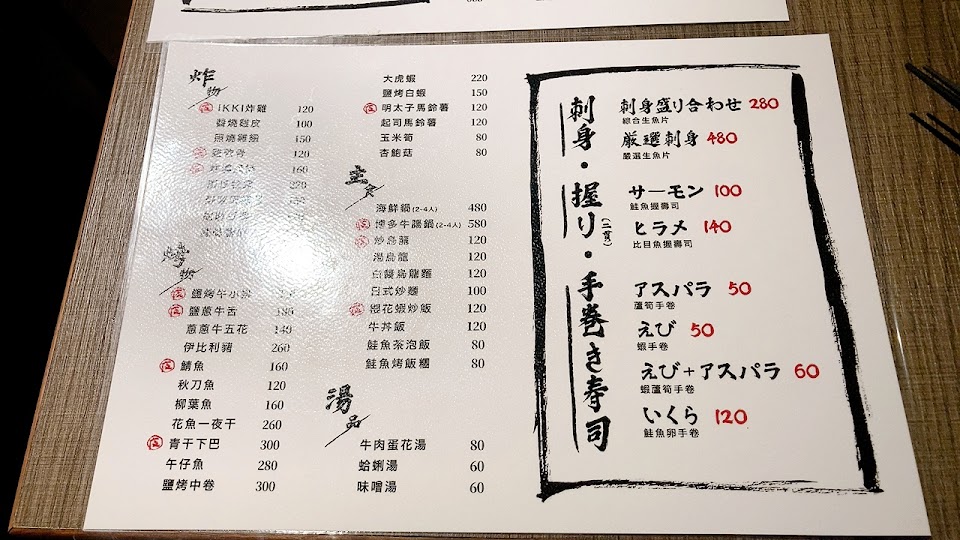 炸物
IKKI炸雞 120
醬燒雞皮 100
照燒雞翅 150
120
160
烤物
鹽烤牛小排
鹽蔥牛舌 180
蔥蔥牛五花 140
伊比利豬 260
鯖魚 160
秋刀魚 120
柳葉魚 160
花魚一夜干 260
青干下巴 300
午仔魚 280
鹽烤中卷 300
大虎蝦 220
鹽烤白蝦 150
明太子馬鈴薯 120
起司馬鈴薯 120
玉米筍 80
杏鮑菇 80
主食
海鮮鍋(2-4人) 480
博多牛腸鍋(2-4人) 580
炒烏龍 120
湯烏龍 120
白醬烏龍麵 120
日式炒麵 100
櫻花蝦炒飯 120
牛丼飯 120
鮭魚茶泡飯 80
鮭魚烤飯糰 80
湯品
牛肉蛋花湯 80
蛤蜊湯 60
味噌湯 60
刺身・握り(二貫)・手巻き寿司
刺身盛り合わせ 280
綜合生魚片
厳選刺身 480
嚴選生魚片
サーモン 100
鮭魚握壽司
ヒラメ 140
比目魚握壽司
アスパラ 50
蘆筍手卷
えび 50
蝦手卷
えび+アスパラ 60
蝦蘆筍手卷
いくら 120
鮭魚卵手卷